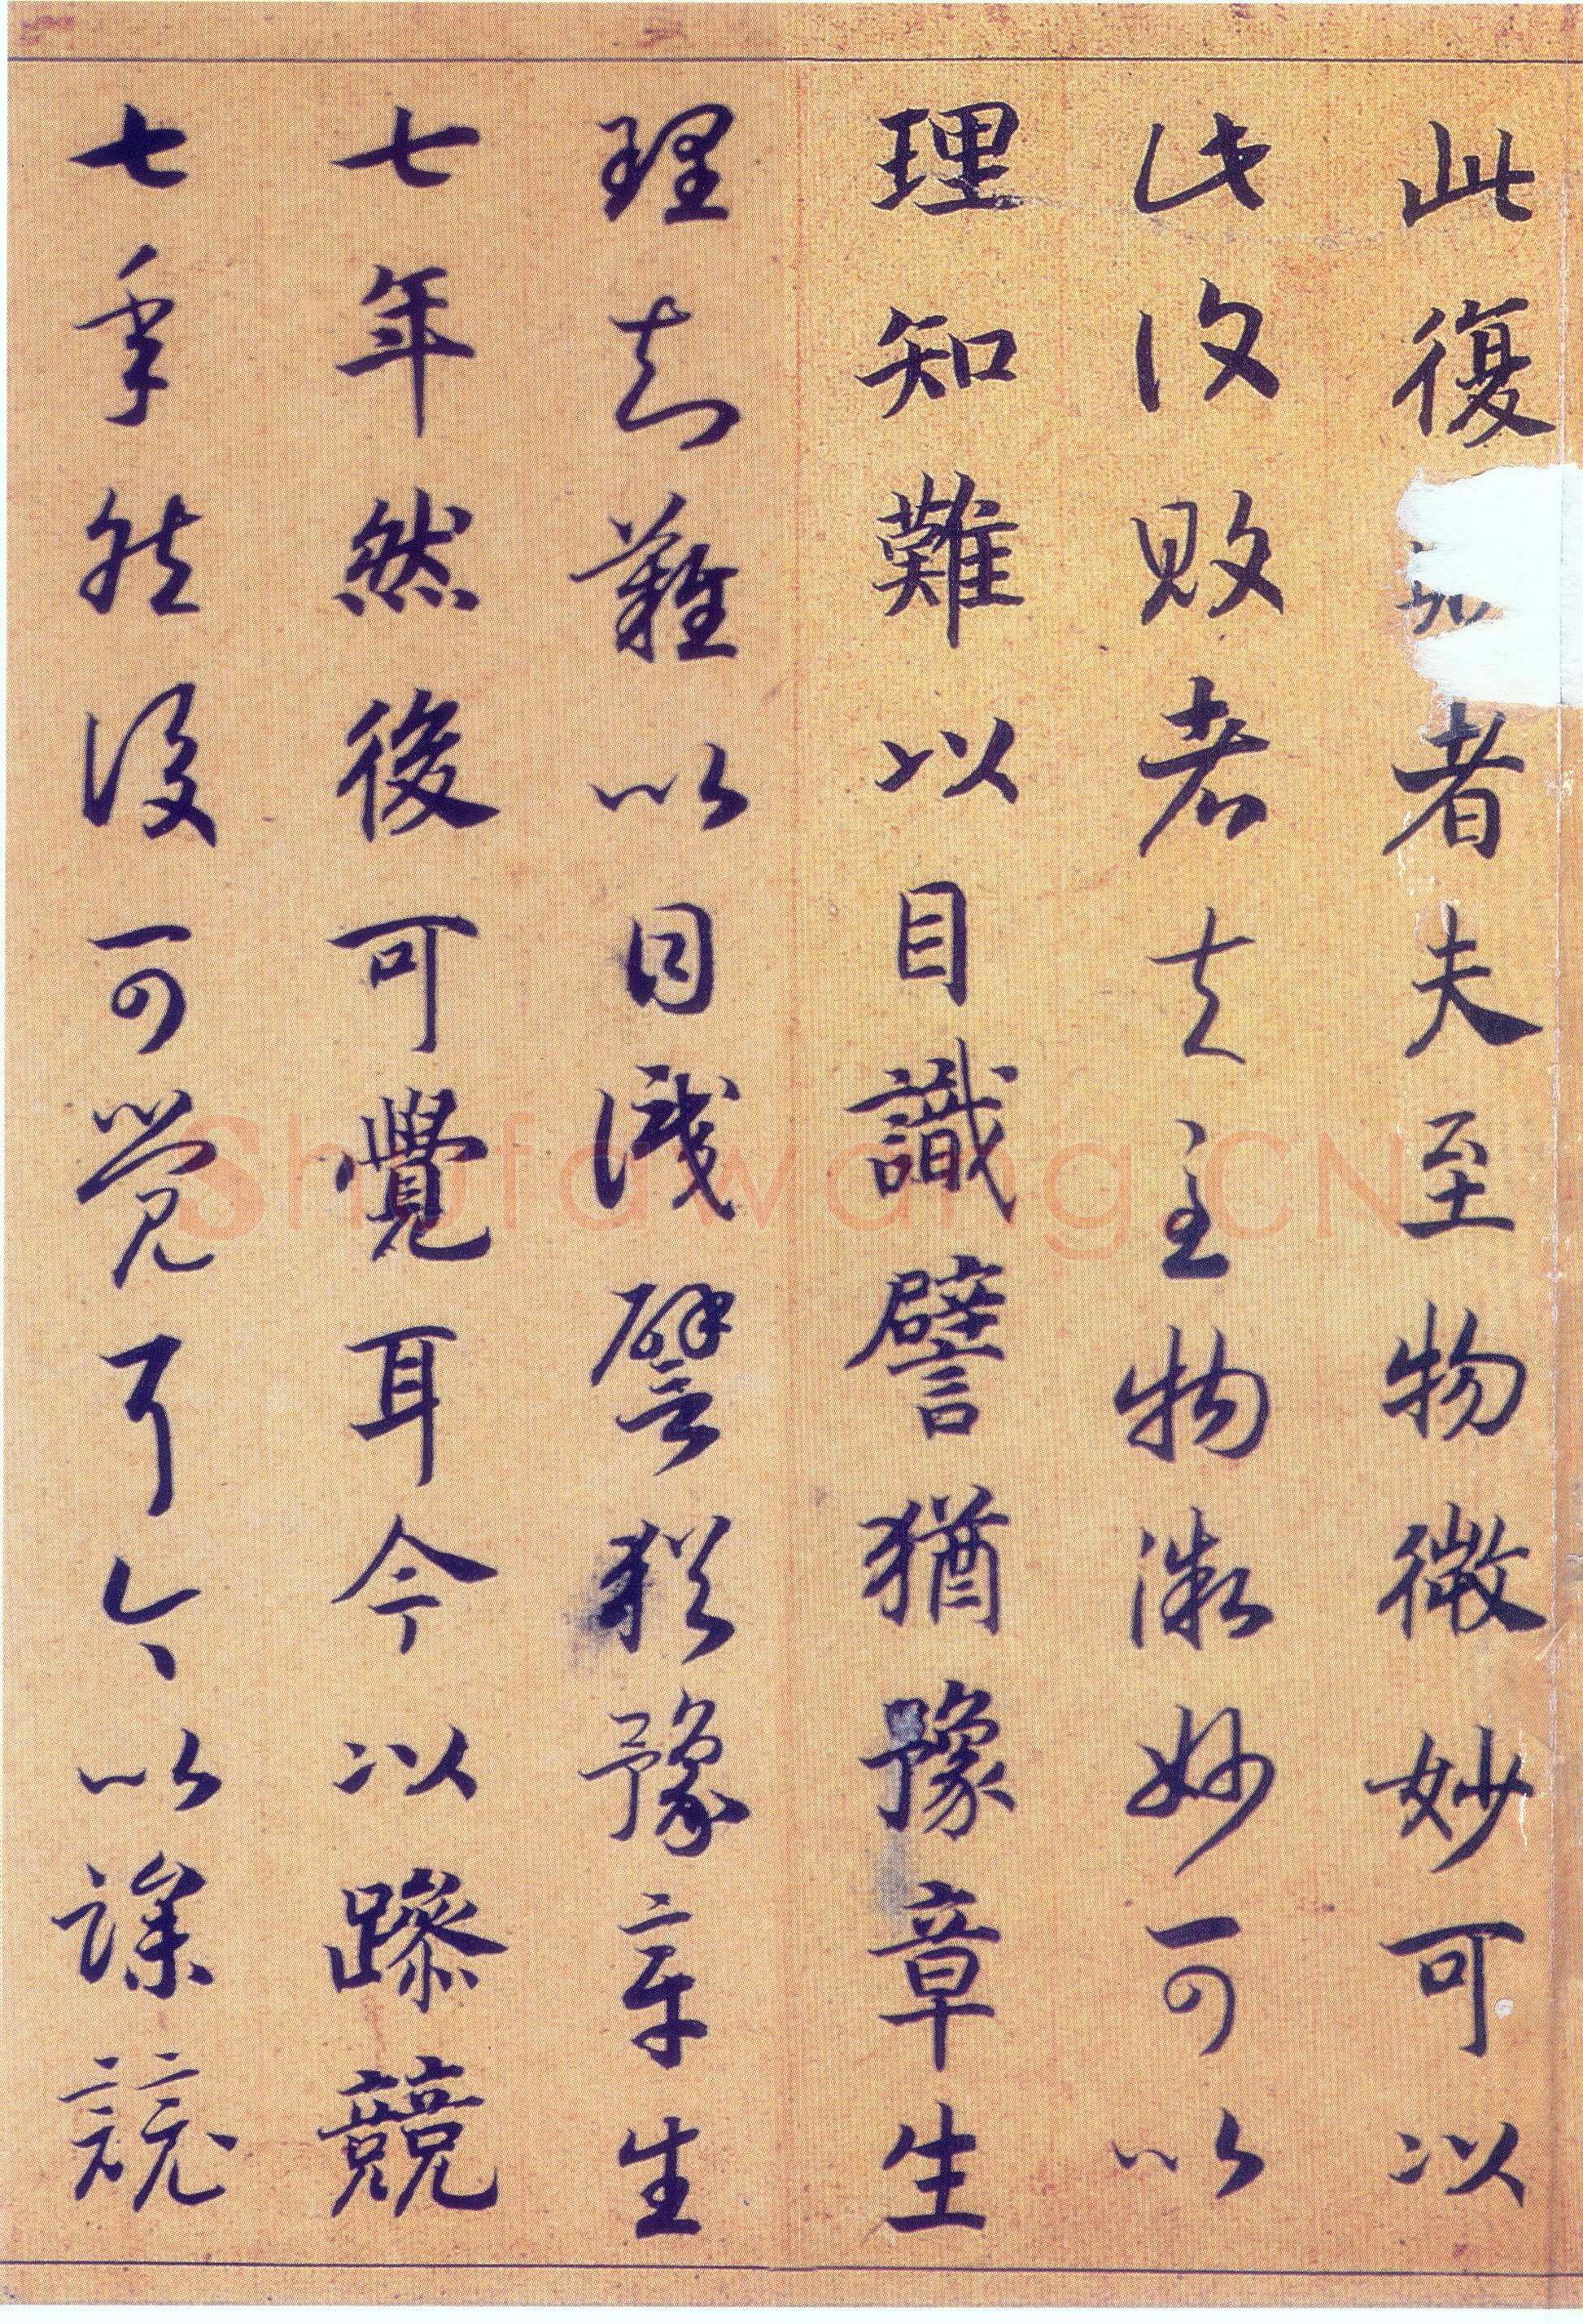 此復者夫至物微妙可以
此復敗者夫至物微妙可以
理知難以目識譬猶豫章生
理知難以目識譬猶豫章生
七年然後可覺耳今以躁競
七年然後可覺耳今以躁競
Shufawang.CN